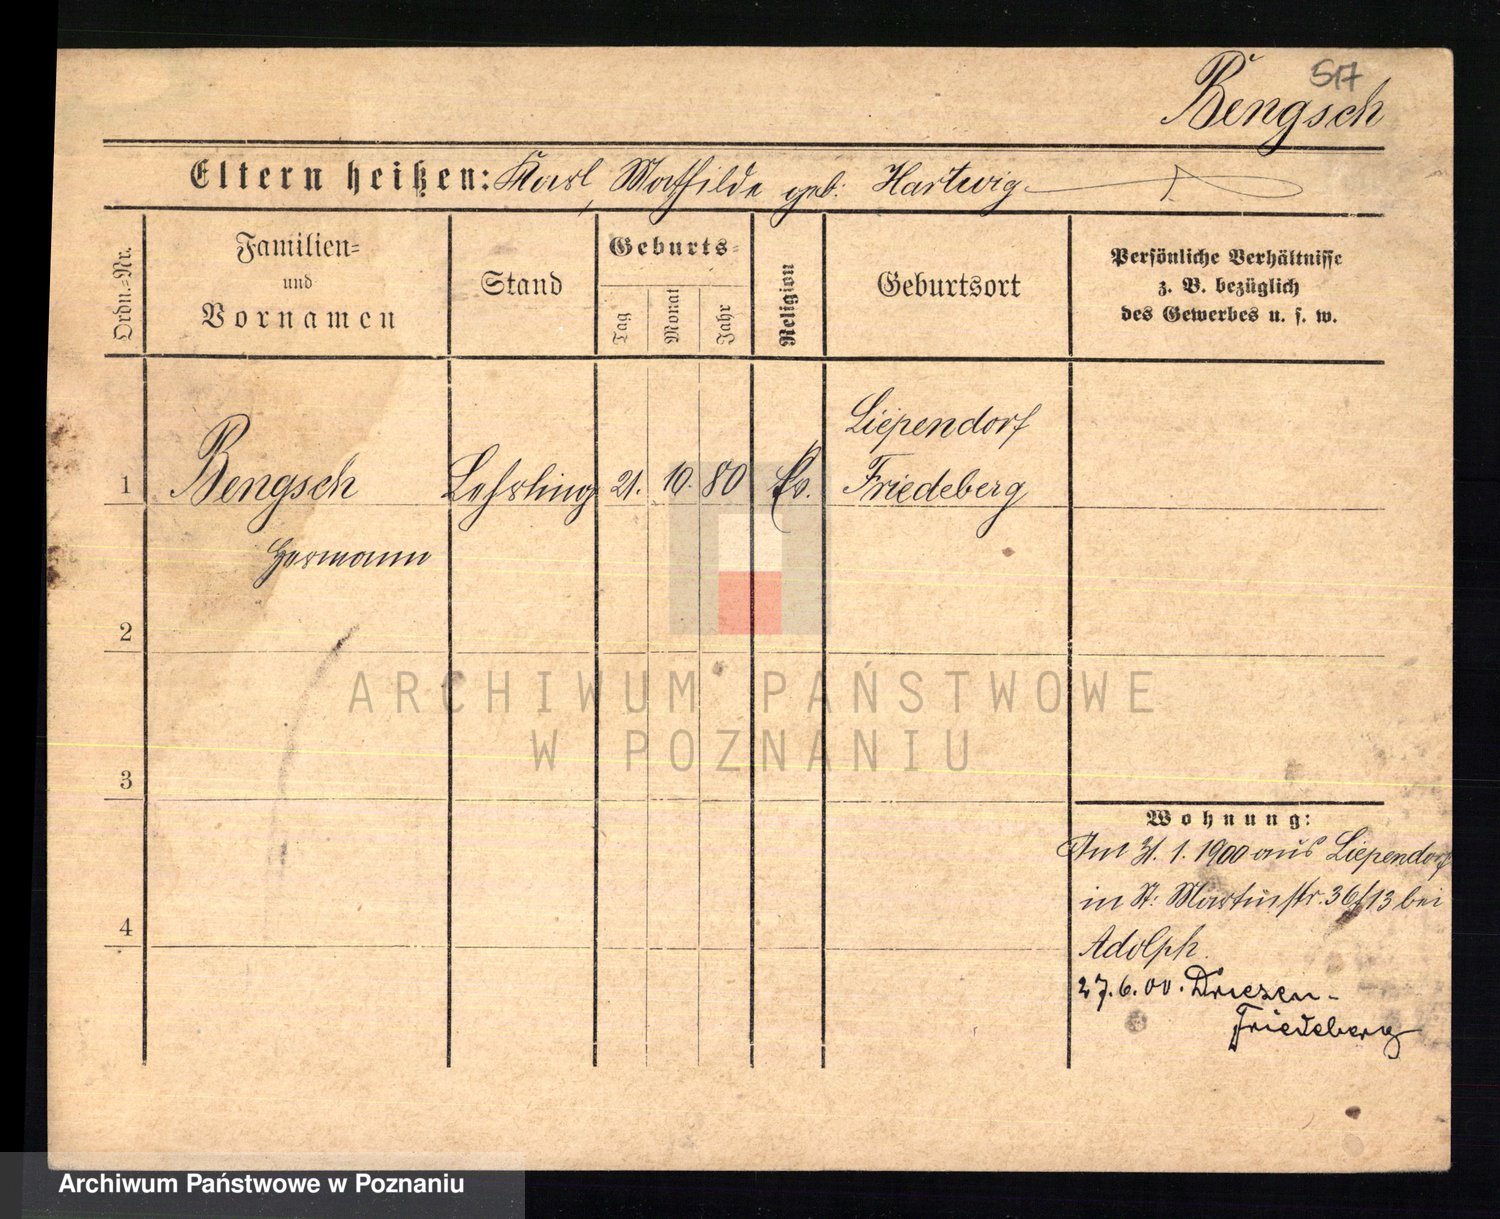 517
Bengsch
Eltern heißen: Karl, Mathilde geb. Hartwig
Ordn.-Nr.
Familien-
und
Vornamen
Stand
Geburts-
Tag
Monat
Jahr
Religion
Geburtsort
Persönliche Verhältnisse
z. B. bezüglich
des Gewerbes u. s. w.
Liependorf
1 Bengsch Lehrling 21. 10. 80 Ev. Friedeberg
Hermann
2
ARCHIWUM PAŃSTWOWE
W POZNANIU
3
Wohnung:
Am 31. 1. 1900 aus Liependorf
in St. Martinstr. 36/13 bei
4
Adolph.
27. 6. 00. Driesen-
Friedeberg
Archiwum Państwowe w Poznaniu